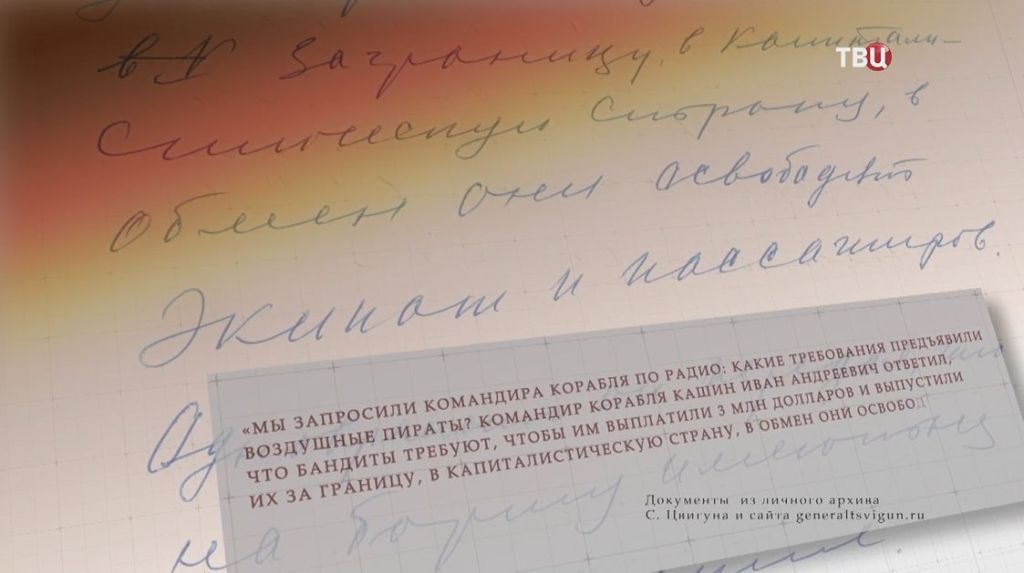 в X заграницу, в капитали-
ТВЦ
стическую страну, в
обмен они освободят
экипаж и пассажиров
«МЫ ЗАПРОСИЛИ КОМАНДИРА КОРАБЛЯ ПО РАДИО: КАКИЕ ТРЕБОВАНИЯ ПРЕДЪЯВИЛИ
ВОЗДУШНЫЕ ПИРАТЫ? КОМАНДИР КОРАБЛЯ КАШИН ИВАН АНДРЕЕВИЧ ОТВЕТИЛ,
ЧТО БАНДИТЫ ТРЕБУЮТ, ЧТОБЫ ИМ ВЫПЛАТИЛИ 3 МЛН ДОЛЛАРОВ И ВЫПУСТИЛИ
ИХ ЗА ГРАНИЦУ, В КАПИТАЛИСТИЧЕСКУЮ СТРАНУ, В ОБМЕН ОНИ ОСВОБОД
на борту
Документы из личного архива
С. Цвигуна и сайта generaltsvigun.ru